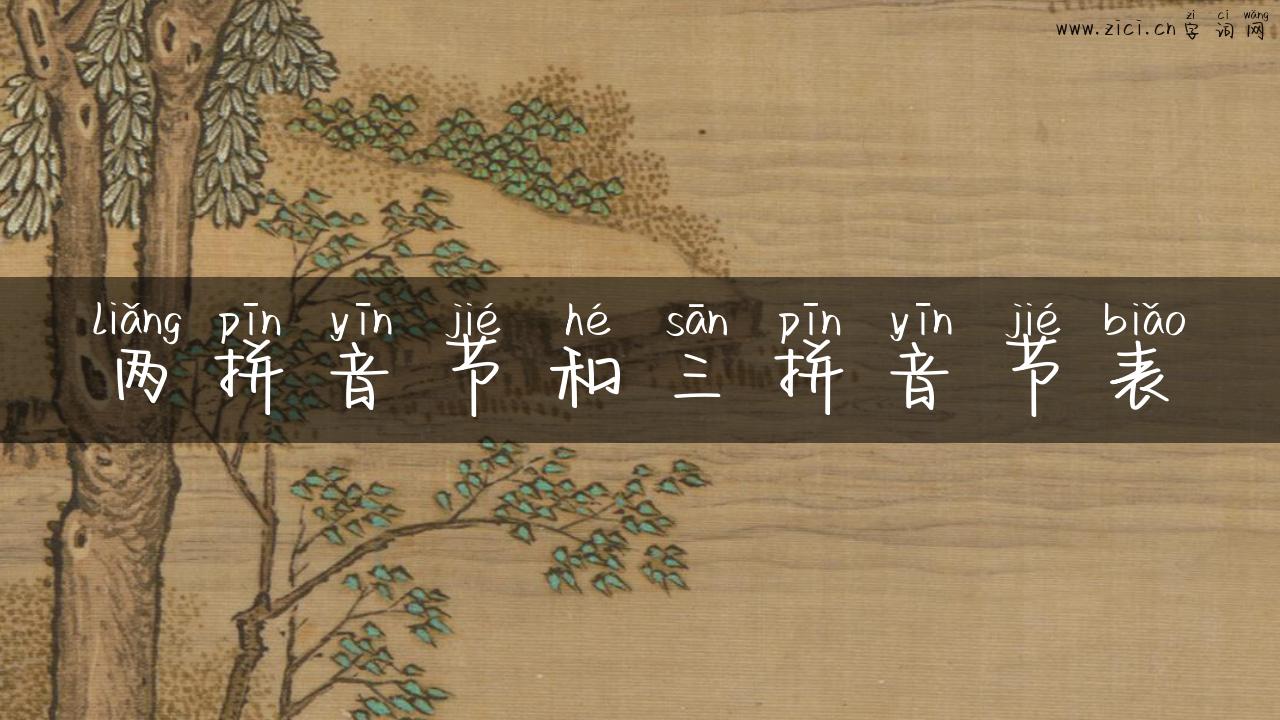 zì cí wǎng
www.zici.cn 字 词 网
liǎng pīn yīn jié hé sān pīn yīn jié biǎo
两 拼 音 节 和 三 拼 音 节 表